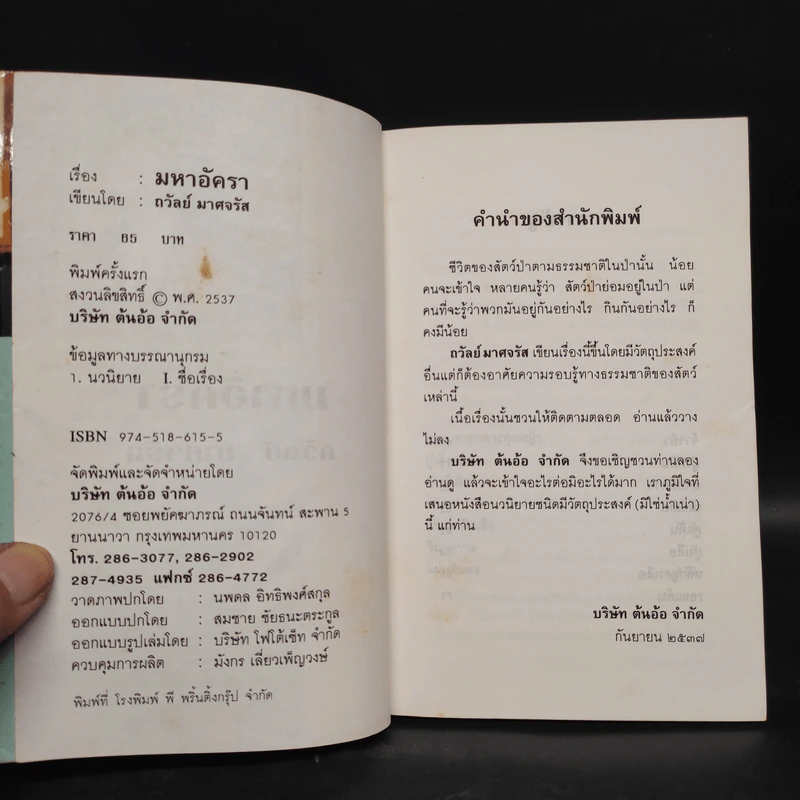 เรื่อง : มหาอัครา
เขียนโดย : ถวัลย์ มาศจรัส
ราคา 65 บาท
พิมพ์ครั้งแรก
สงวนลิขสิทธิ์ © พ.ศ. 2537
บริษัท ต้นอ้อ จำกัด
ข้อมูลทางบรรณานุกรม
1. นวนิยาย I. ชื่อเรื่อง
ISBN 974-518-615-5
จัดพิมพ์และจัดจำหน่ายโดย
บริษัท ต้นอ้อ จำกัด
2076/4 ซอยพยัคฆาภรณ์ ถนนจันทน์ สะพาน 5
ยานนาวา กรุงเทพมหานคร 10120
โทร. 286-3077, 286-2902
287-4935 แฟกซ์ 286-4772
วาดภาพปกโดย : นพดล อิทธิพงศ์สกุล
ออกแบบปกโดย : สมชาย ชัยธนะตระกูล
ออกแบบรูปเล่มโดย : บริษัท โฟโต้เซ็ท จำกัด
ควบคุมการผลิต : มังกร เลี่ยวเพ็ญวงษ์
พิมพ์ที่ โรงพิมพ์ พี พริ้นติ้งกรุ๊ป จำกัด
คำนำของสำนักพิมพ์
ชีวิตของสัตว์ป่าตามธรรมชาติในป่านั้น น้อย
คนจะเข้าใจ หลายคนรู้ว่า สัตว์ป่าย่อมอยู่ในป่า แต่
คนที่จะรู้ว่าพวกมันอยู่กันอย่างไร กินกันอย่างไร ก็
คงมีน้อย
ถวัลย์ มาศจรัส เขียนเรื่องนี้ขึ้นโดยมีวัตถุประสงค์
อื่นแต่ก็ต้องอาศัยความรอบรู้ทางธรรมชาติของสัตว์
เหล่านี้
เนื้อเรื่องนั้นชวนให้ติดตามตลอด อ่านแล้ววาง
ไม่ลง
บริษัท ต้นอ้อ จำกัด จึงขอเชิญชวนท่านลอง
อ่านดู แล้วจะเข้าใจอะไรต่อมิอะไรได้มาก เราภูมิใจที่
เสนอหนังสือนวนิยายชนิดมีวัตถุประสงค์ (มิใช่น้ำเน่า)
นี้ แก่ท่าน
บริษัท ต้นอ้อ จำกัด
กันยายน ๒๕๓๗